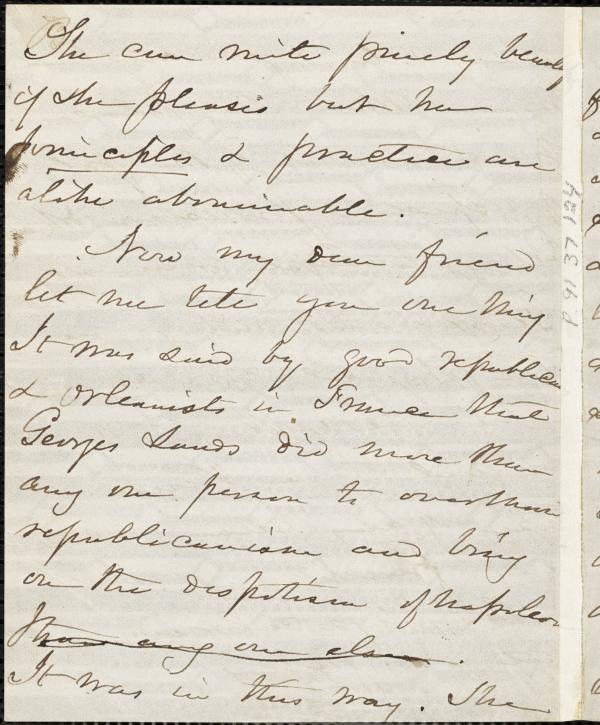 She can write purely beauty
if she pleases but her
principles & practice are
alike abominable.
Now my dear friend
let me tell you one thing
It was said by good republican
& Orleanists in France that
Georges Sands did more than
any one person to overthrow
republicanism and bring
on the despotism of Napoleon
than any one else.
It was in this way. She
P. 91 37 124